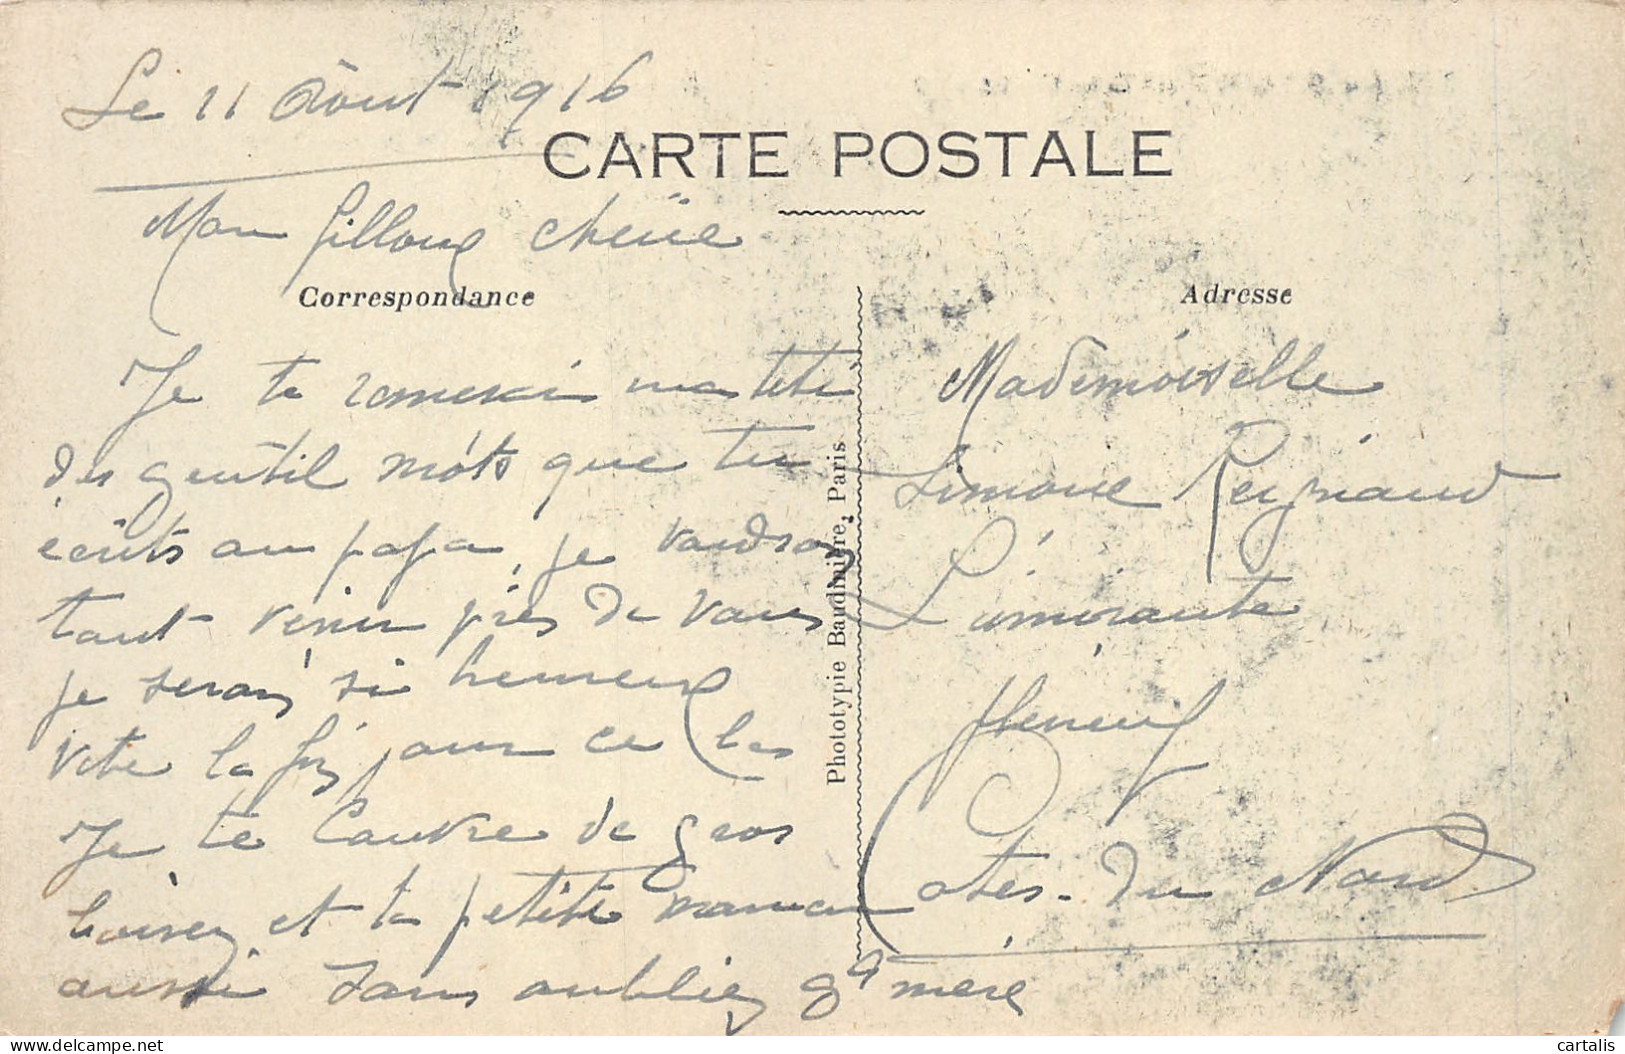 Le 11 Aout 1916
CARTE POSTALE
Mon filloux cherie
Correspondance
Je te remerci ma tete
des gentil mots que tu
ecrits au papa, je voudrais
tant venir près de vous
je serais si heureux
vite la fin, pour ce
Je te couvre de gros
baisers, et ta petite maman
aussi sans oublier gd mere
Phototypie Baudinière, Paris
Adresse
Mademoiselle
Simone Reignaud
Pléneuf
Côtes-du Nord
cartalis
www.delcampe.net